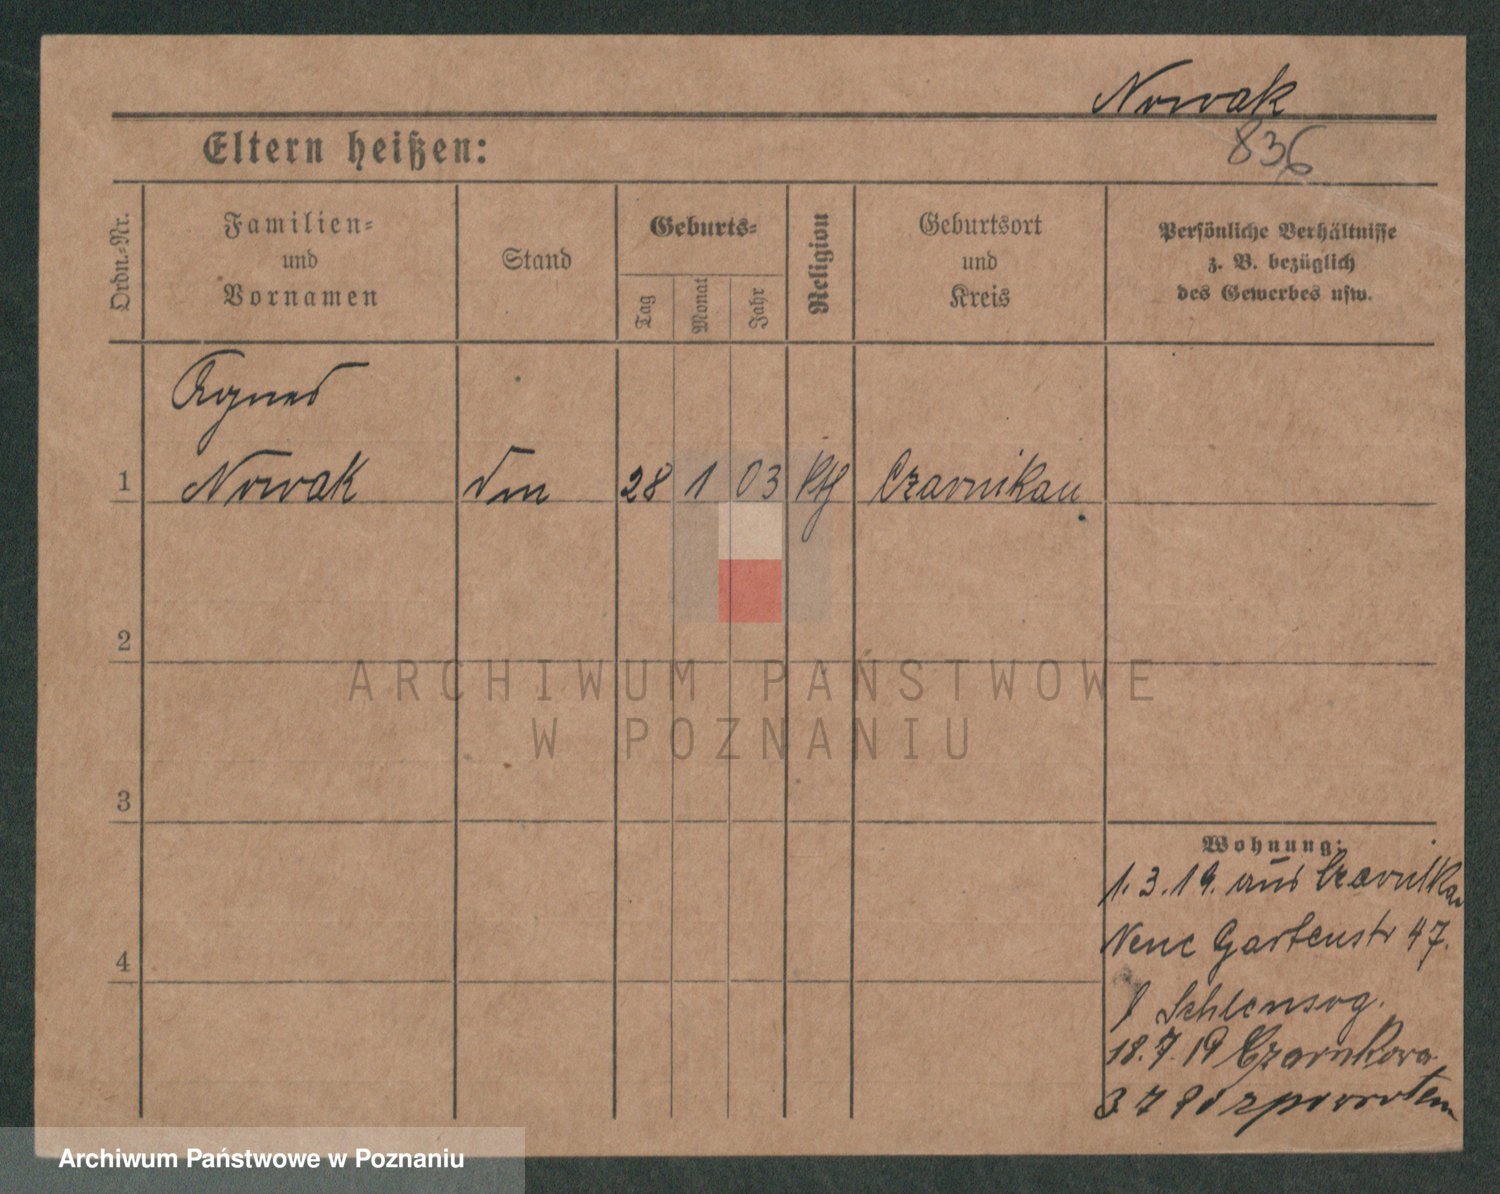 Nowak
Eltern heißen:
836
Ordn.-Nr.
Familien-
und
Vornamen
Stand
Geburts-
Tag
Monat
Jahr
Religion
Geburtsort
und
Kreis
Persönliche Verhältnisse
z. B. bezüglich
des Gewerbes usw.
Agnes
1 Nowak 28 1 03 Czarnikau
2
ARCHIWUM PAŃSTWOWE
W POZNANIU
3
Wohnung:
1.3.19. aus Czarnikau
Neue Gartenstr 47.
4
18.7.19 Czarnkowa
zpowrotem
Archiwum Państwowe w Poznaniu